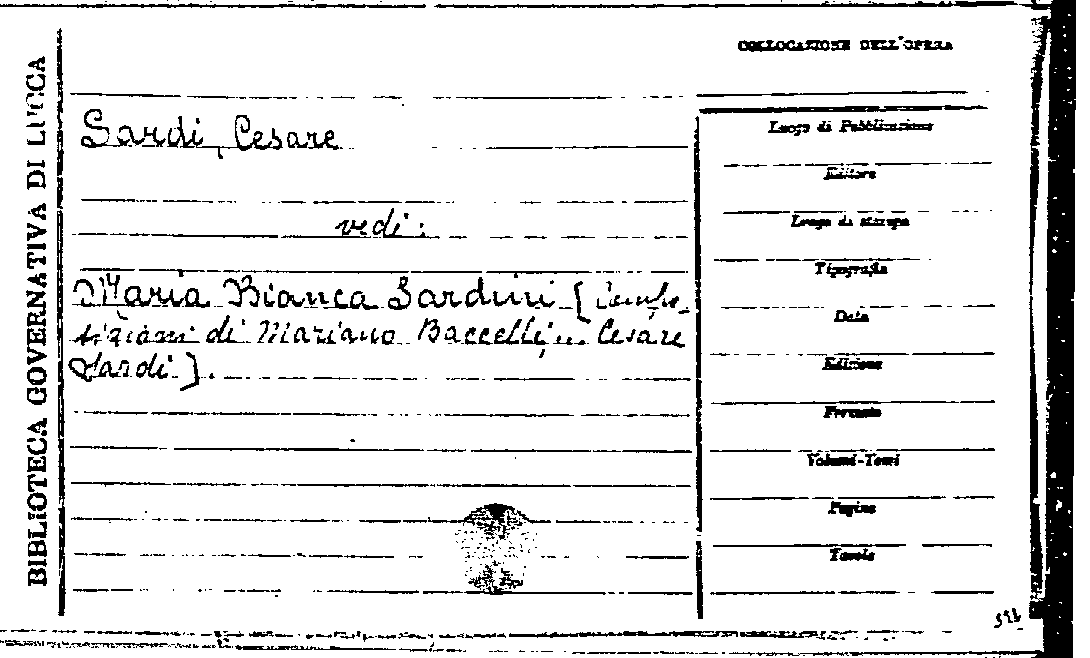 BIBLIOTECA GOVERNATIVA DI LUCCA
COLLOCAZIONE DELL'OPERA
Sardi, Cesare
vedi:
Maria Bianca Sardini [Compo-
sizioni di Mariano Baccelli, Cesare
Sardi].
Luogo di Pubblicazione
Editore
Luogo di stampa
Tipografia
Data
Edizione
Formato
Volumi-Tomi
Pagine
Tavole